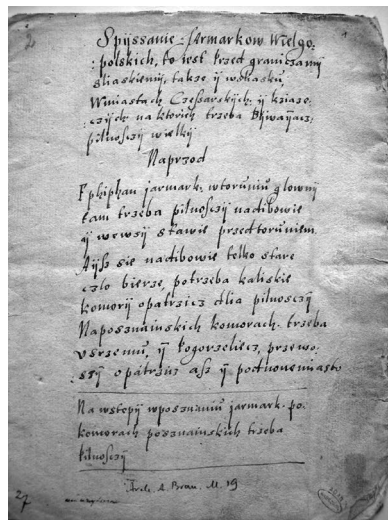 2
Spyssanie Jarmarkow Wielgo:
:polskich, to iest przed graniczamÿ
sliaskiemÿ, takze ÿ wsliasku,
Wmiastach Czessarskÿch ÿ kziaze:
czÿch na ktorich trzeba Bÿwaÿacz:
pilnosczÿ wielkÿ
Naprzod
Epiphan jarmark wtoruniu glownÿ
tam trzeba pilnosczÿ nadibowie
ÿ wewsÿ stawie przedtoruniem
Aÿsz sie nadibowie telko stare
czlo bierze, potrzeba kaliskie
komorÿ opatrzicz dlia pilnosczÿ
Naposznainskich komorach trzeba
wszremu, ÿ Pogorzeliecz, przewo:
szÿ opatrzicz asz ÿ podnoviemiasto
Na wstopÿ wposznaniu jarmark po:
komorach posznainskich trzeba
Pilnosczÿ
A. Brau. M. 19
27